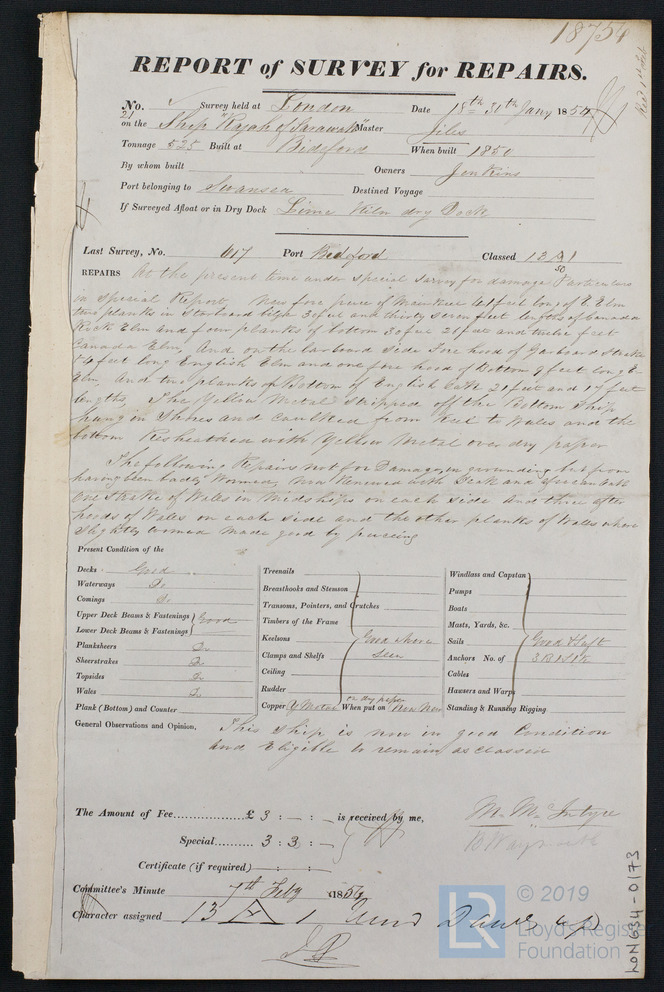 18754
REPORT of SURVEY for REPAIRS.
No. Survey held at London Date 18th 31th Jany 1854
21 on the Ship "Rajah of Sarawak" Master Jiles
Tonnage 525 Built at Bideford When built 1850
By whom built Owners Jenkins
Port belonging to Swansea Destined Voyage
If Surveyed Afloat or in Dry Dock Lime Kiln dry Dock
Last Survey, No. 617 Port Bideford Classed 13 A 1
50
REPAIRS At the present time under special survey for damage Particulars
in special Report, New fore piece of Main Keel feet long of E Elm
two planks in Starboard bilge 30 feet and thirty seven feet lengths of Canada
Rock Elm and four planks of bottom 30 feet 28 feet and twelve feet
Canada Elm, And on the larboard side Fore hood of Garboard Strake
feet long English Elm and one fore hood of Bottom 9 feet long E
Elm, And two planks of Bottom of English Oak 21 feet and 17 feet
lengths, The Yellow Metal stripped off the Bottom Ship
hung in Shores and caulked from Keel to Wales and the
bottom Resheathed with Yellow Metal over dry paper
The following Repairs not for Damage in grounding but from
having been badly Wormed, New Renewed with Teak and African Oak
One Strake of Wales in Midships on each side And three after
hoods of Wales on each side and the other planks of Wales where
slightly wormed made good by piecing
Present Condition of the
Decks Good
Waterways Do
Comings Do
Upper Deck Beams & Fastenings Good
Lower Deck Beams & Fastenings
Planksheers Do
Sheerstrakes Do
Topsides Do
Wales Do
Plank (Bottom) and Counter
Treenails
Breasthooks and Stemson
Transoms, Pointers, and Crutches
Timbers of the Frame
Keelsons Good where
Clamps and Shelfs Seen
Ceiling
Rudder
Copper Y Metal on dry paper When put on Now New
Windlass and Capstan
Pumps
Boats
Masts, Yards, &c.
Sails Good & Suft
Anchors No. of 3 B 1 S 1 K
Cables
Hausers and Warps
Standing & Running Rigging
General Observations and Opinion. This Ship is now in good Condition
and Eligible to remain as classed
The Amount of Fee £ 3 : - : - is received by me,
M. McIntyre
Special 3 : 3 : -
Certificate (if required) - : - : -
Committee's Minute 7th Feby 1854
Character assigned 13 A 1
LON634-0173
LR
© 2019
Lloyd's Register
Foundation